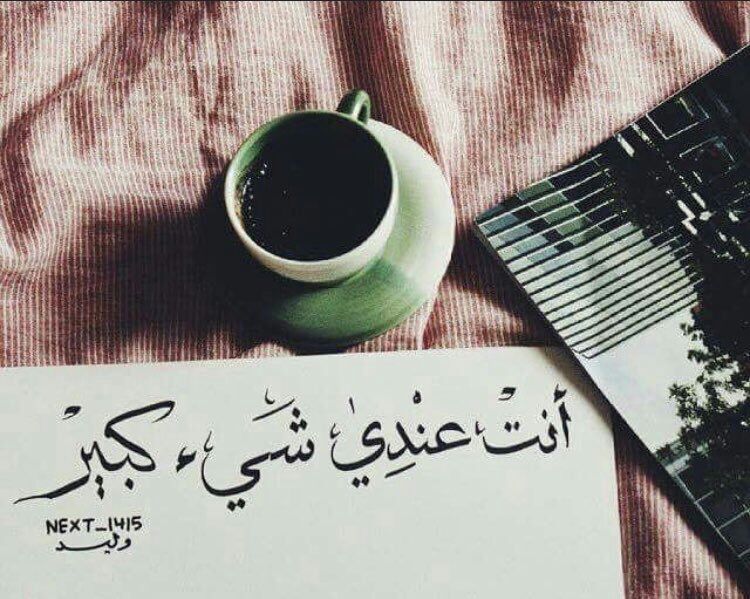 أنتْ عنْدِي شَيء كبيرْ
NEXT_1415
وليد